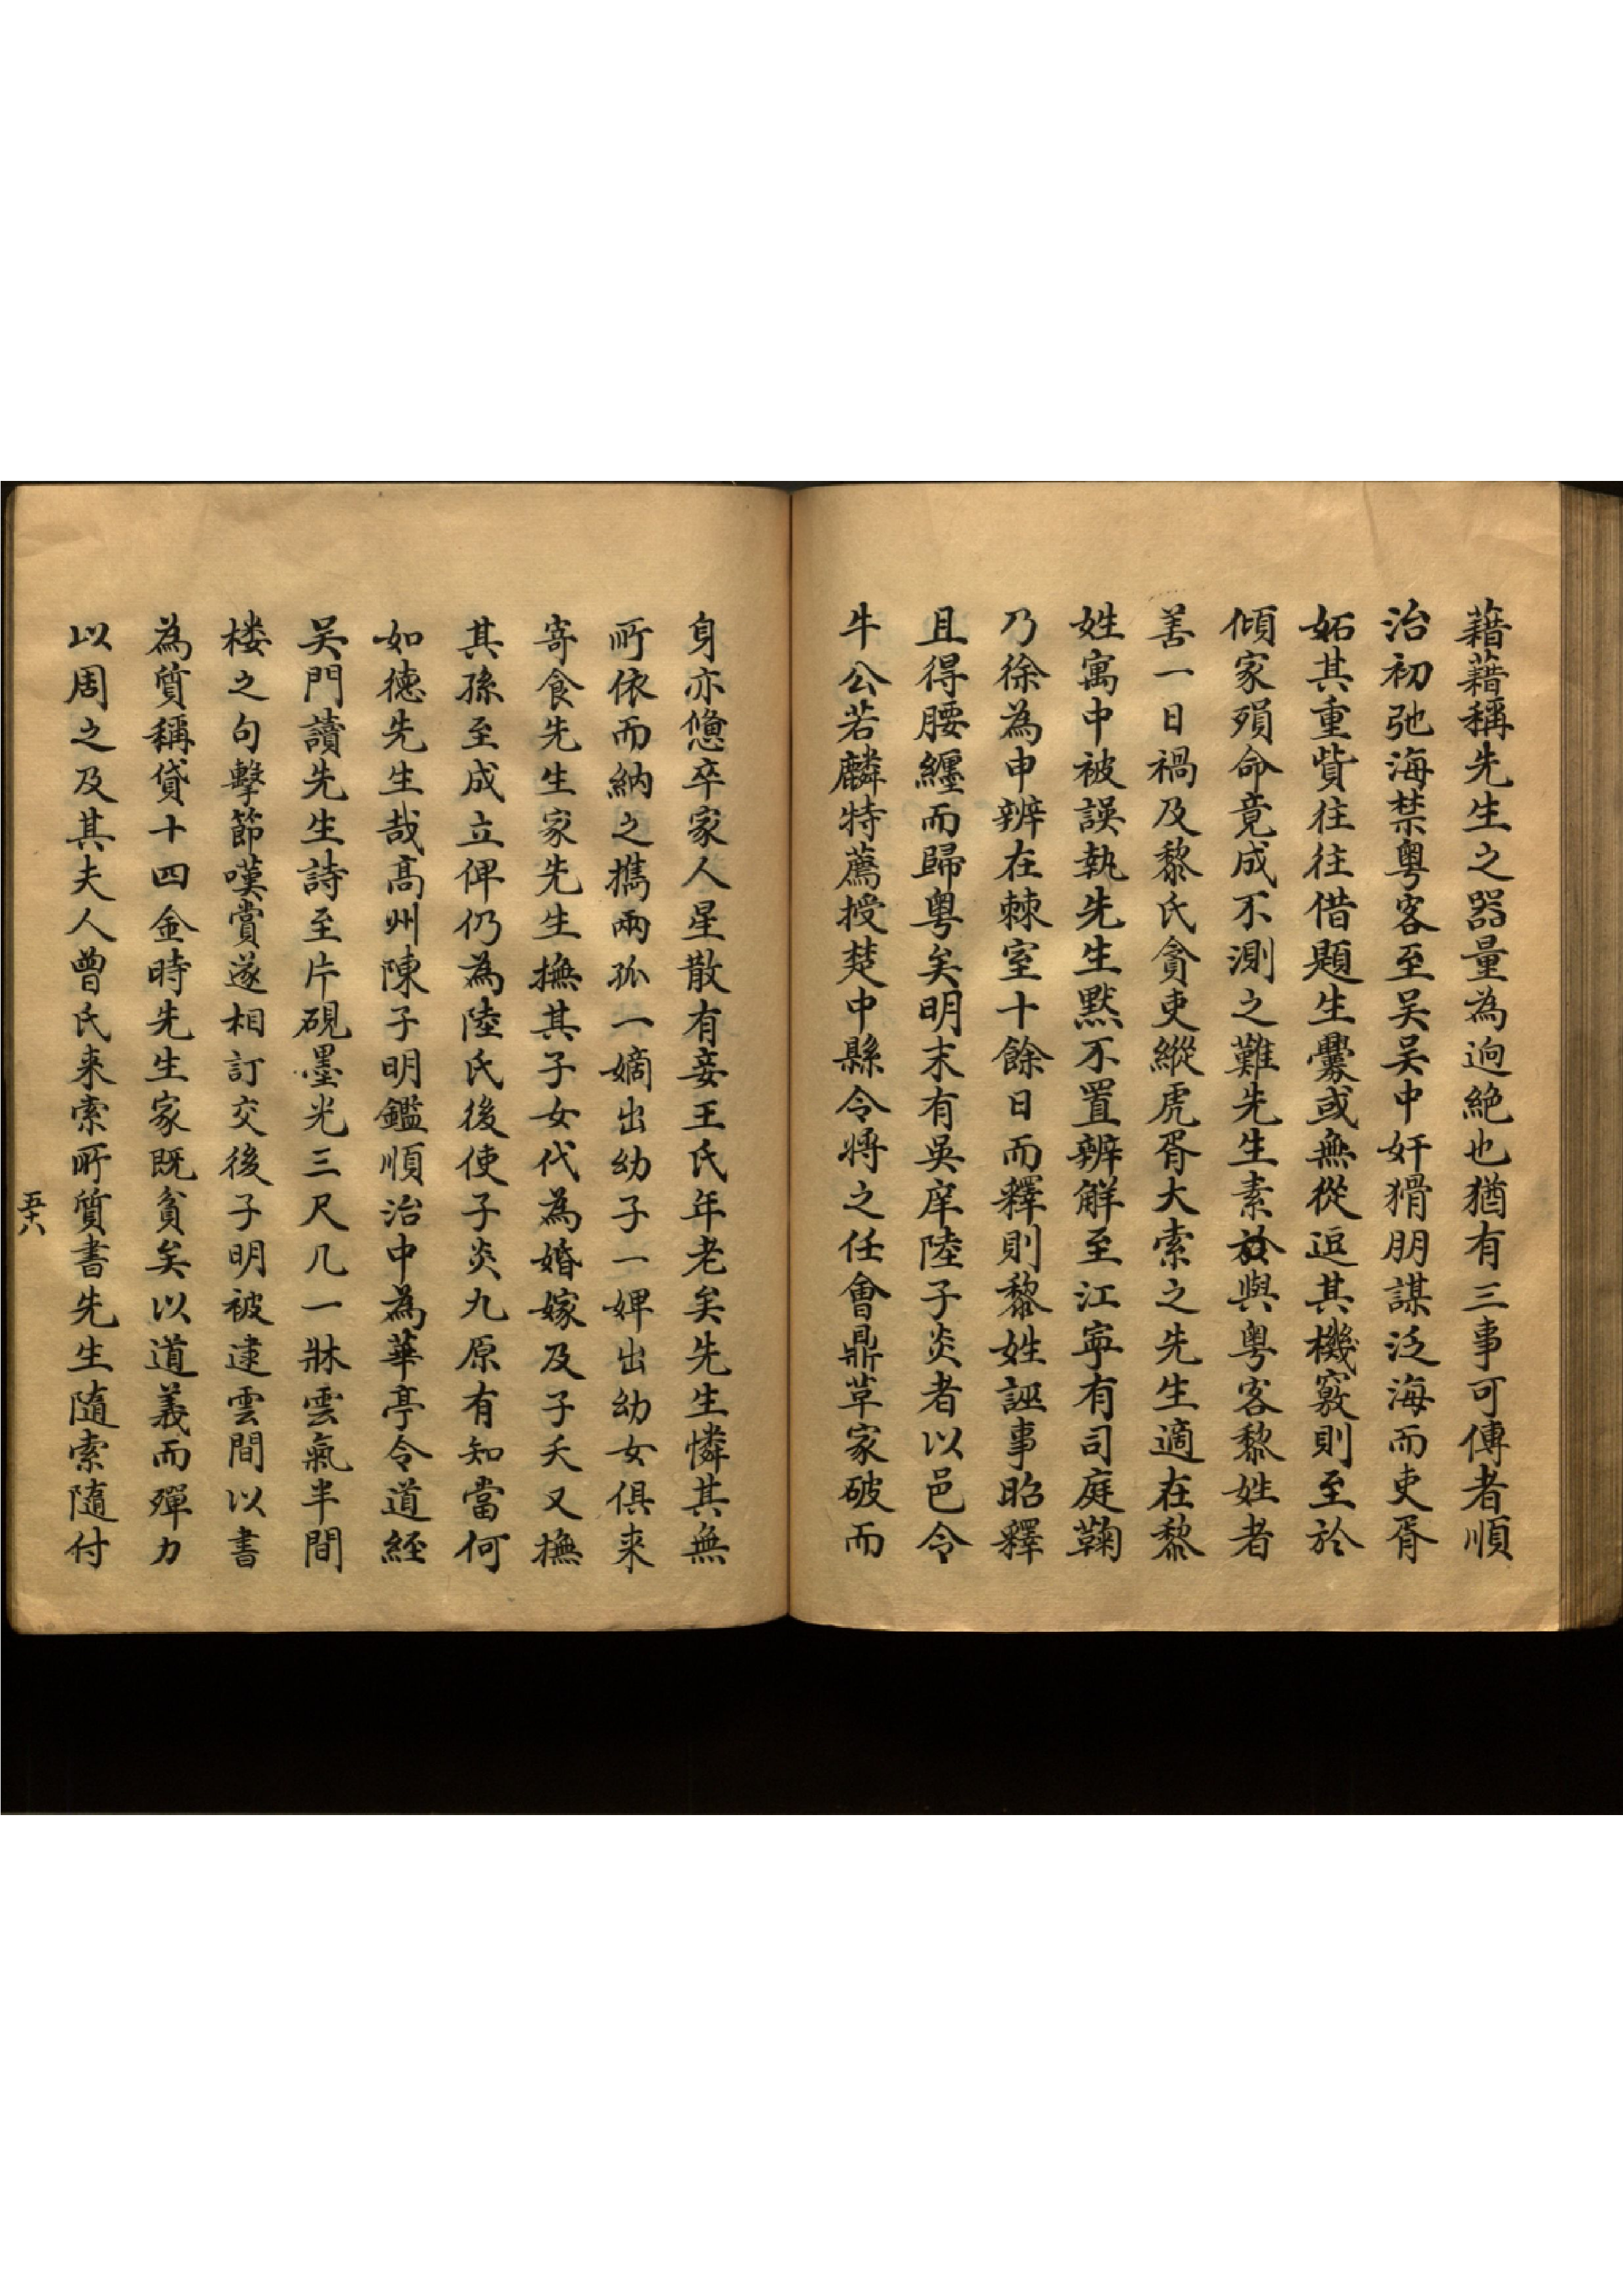 藉藉稱先生之器量為逈絶也猶有三事可傳者順
治初弛海禁粤客至吴吴中奸猾朋謀泛海而吏胥
妬其重貲往往借題生釁或無從逗其機竅則至於
傾家殞命竟成不測之難先生素於與粤客黎姓者
善一日禍及黎氏貪吏縱虎胥大索之先生適在黎
姓寓中被誤執先生黙不置辨解至江寧有司庭鞫
乃徐為申辨在棘室十餘日而釋則黎姓誣事昭釋
且得腰纏而歸粤矣明末有吳庠陸子炎者以邑令
牛公若麟特薦授楚中縣令將之任會鼎革家破而
身亦憊卒家人星散有妾王氏年老矣先生憐其無
所依而納之攜兩孤一嫡出幼子一婢出幼女俱来
寄食先生家先生撫其子女代為婚嫁及子夭又撫
其孫至成立俾仍為陸氏後使子炎九原有知當何
如德先生哉髙州陳子明鑑順治中為華亭令道經
吴門讀先生詩至片硯墨光三尺几一牀雲氣半間
楼之句擊節嘆賞遂相訂交後子明被逮雲間以書
為質稱貸十四金時先生家既貧矣以道義而殫力
以周之及其夫人曾氏来索所質書先生隨索隨付
五十八